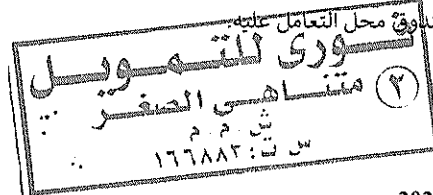 محل التعامل عليه:
نورى للتمويل
متناهى الصغر
٢
ش . م . م
س ت: ١٦٦٨٨٢